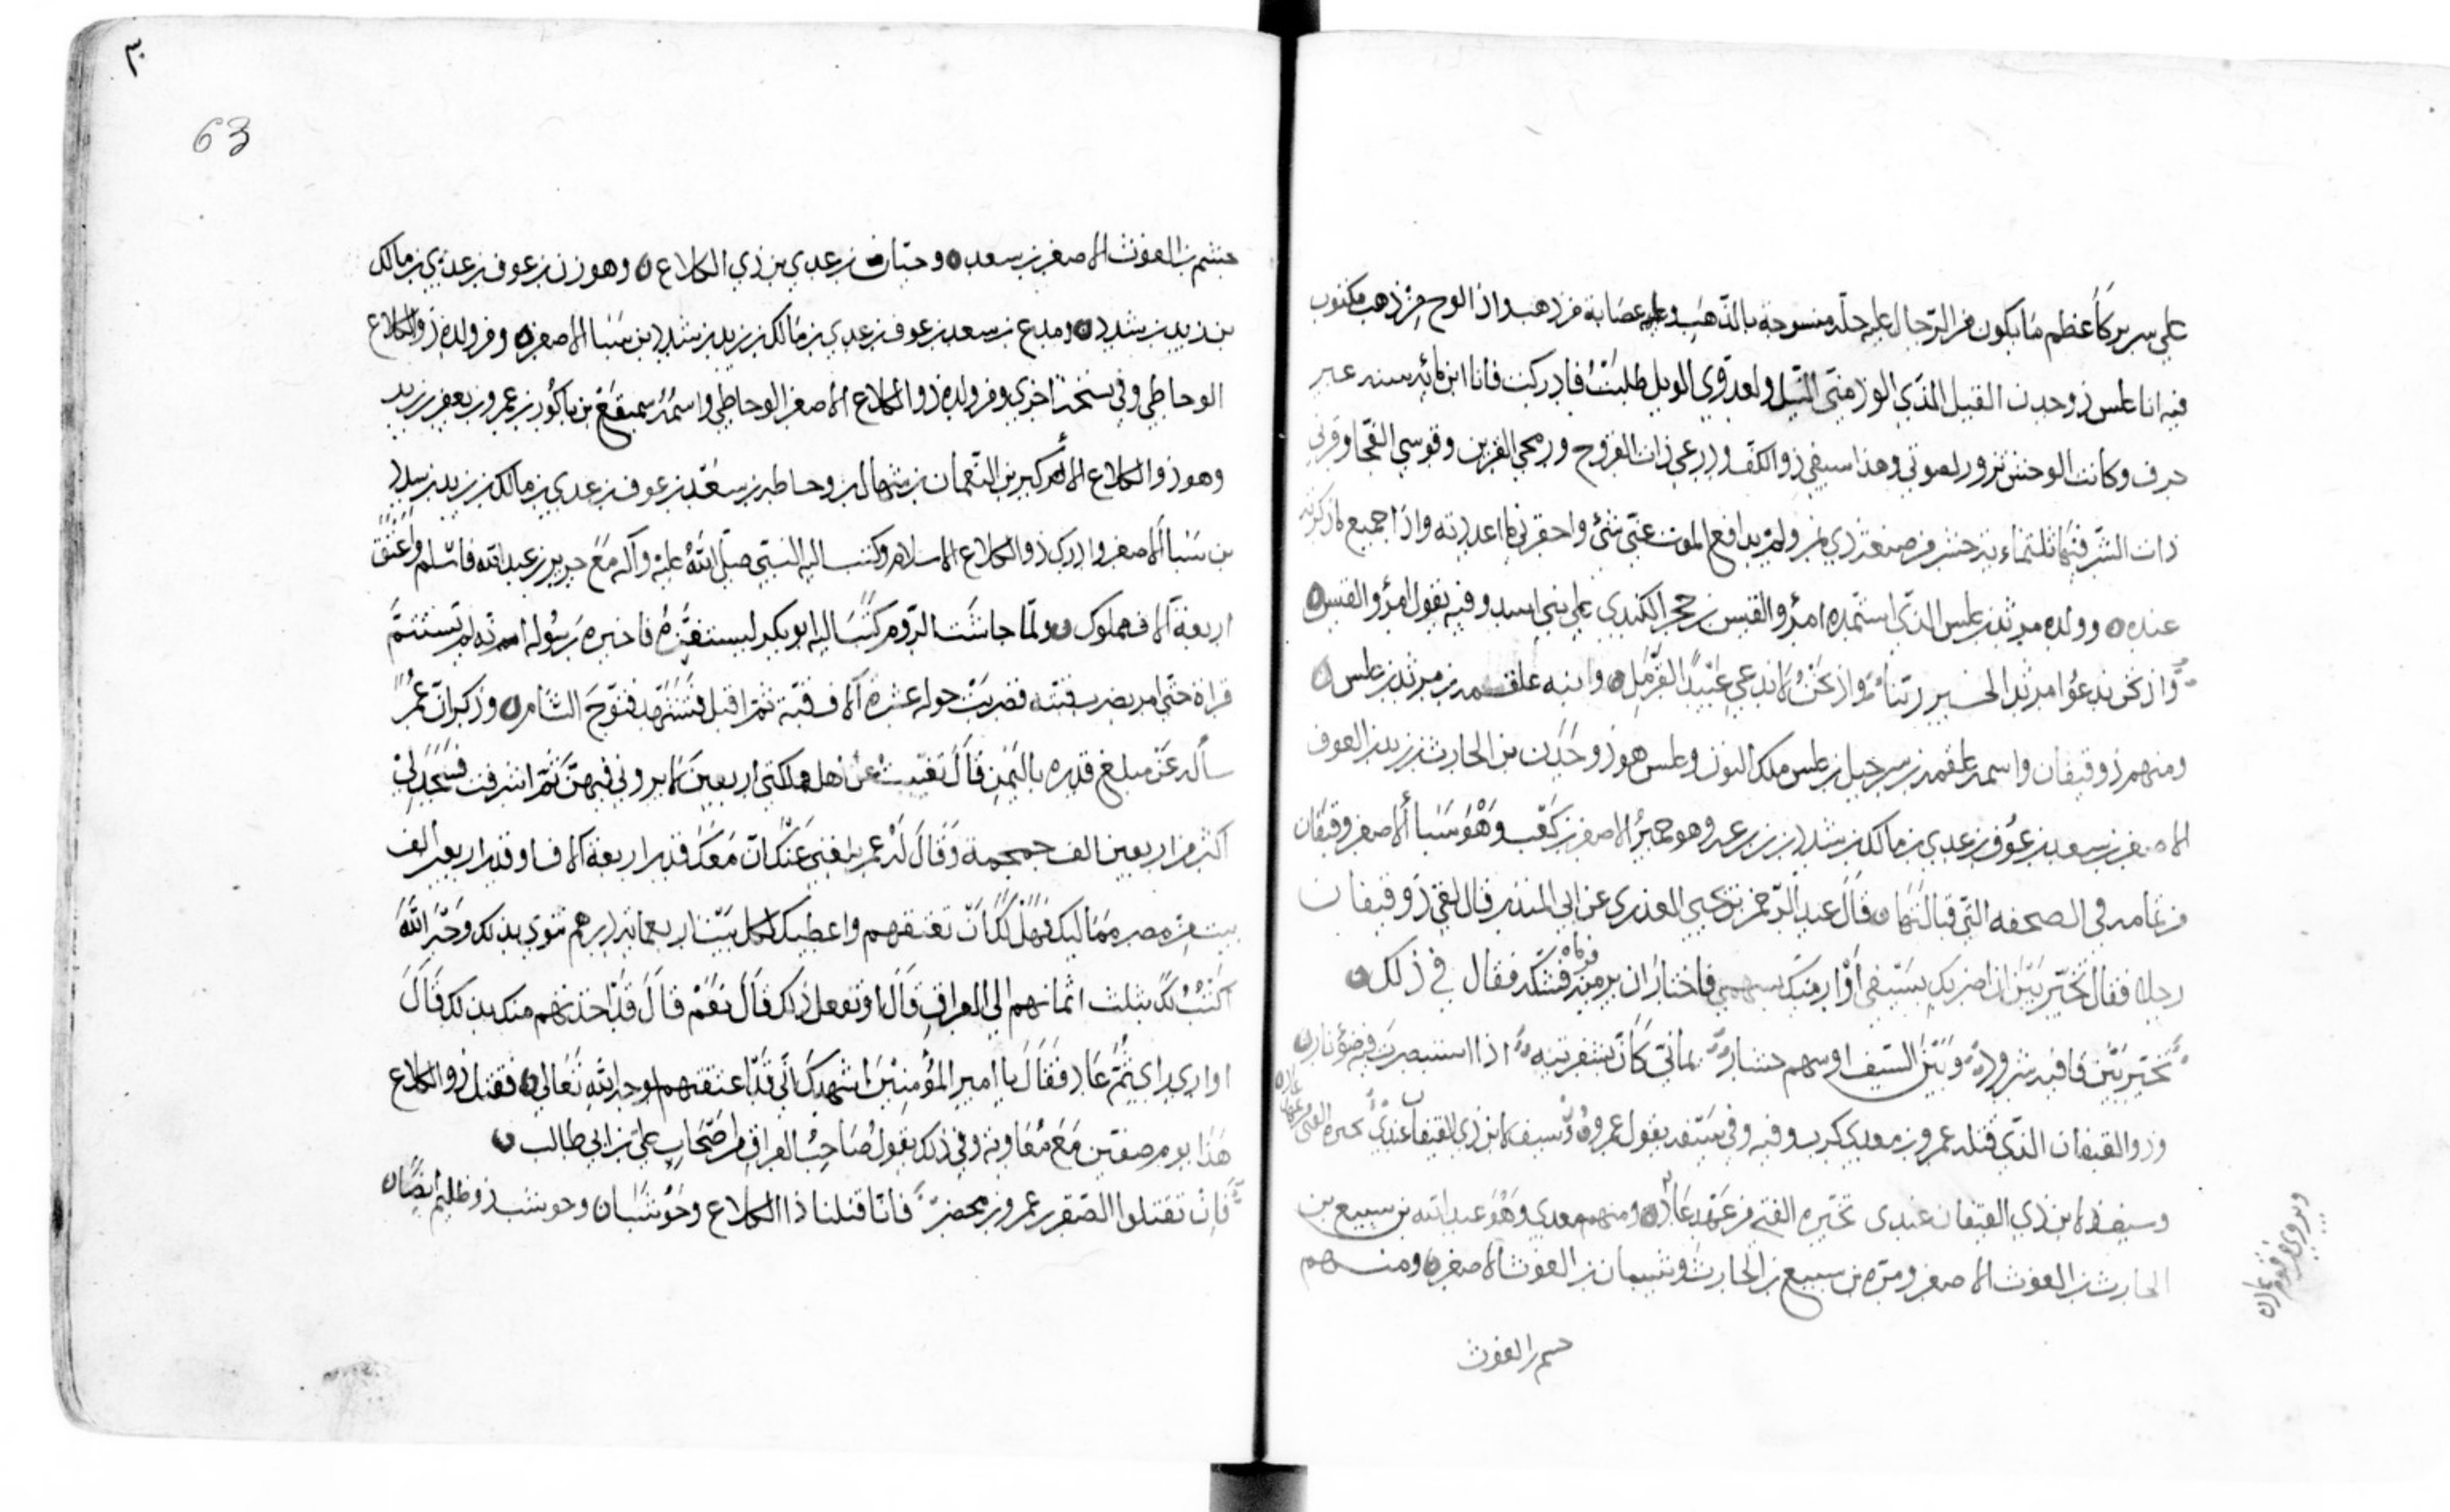 على سرير كأعظم ما يكون من الرّجال عليه حلّة منسوجة بالذّهب وعليه عصابة من ذهب واذا لوح من ذهب مكتوب
فيه انا علس ذو جدن القيل المذي الوذ منّى النّيل ولعدوّي الويل طلبت فادركت فانا ابن مائه سنه عبر
حرف وكانت الوحش تزور لصوتي وهذا سيفي ذو الكف ودرعي ذات الفروج ورمحي الهزبن وقوسي الفجّا وقرني
ذات الشّر فيها ثلثمائه حشر من صنعة ذي نمر ولم يدافع الموت عنّي شئ واحقرني ما اعددته واذا جميع ما ذكرته
عنده وولده مرثد بن علس الذّي استمده امرؤ القيس بن حجر الكندي على بني اسد وفيه يقول امرؤ القيس
واذ نحن ندعوا مرثد الخير ربّنا واذ نحن لا ندعى عبيدًا لقرمل وابنه علقمه بن مرثد بن علس
ومنهم ذو قيفان واسمه علقمه بن شرحبيل بن علس ملك البون وعلس هو ذو جدن بن الحارث بن زيد بن الغوث
الاصغر بن سعد بن عوف بن عدي بن مالك بن شدد بن زرعه وهو حمير الاصغر بن كعب وهو سبأ الاصغر وقيفان
من تمامه في الصحفه التي قبالتها قال عبد الرّحمن بن يحيى العذري عن ابي المنذر قال لقي ذو قيفان
رجلا فقال تخيّر بيّن ان اضربك بسيفى أوْ ارميك بسهمي فاختار ان يرميه فرماه فشكه فقال في ذلك
تخيّر بيّن فاقد شرودة وبيّن السّيف اوسهم حشار يماني كان بشفرتيه اذا استبصرت فيه ضوء نار
وذو القيفان الذّي قتله عمرو بن معدي كرب وفيه وفي سيفه يقول عمرو وسيف لابن ذي القيفان عندي تخيره الفتى
وسيف لابن ذي القيفان عندى تخيّره الفتى من عهد عاد ومنهم معدي وهو عبد الله بن سبيع بن
الحارث بن الغوث الاصغر ومرّه بن سبيع بن الحارث وشيبان بن الغوث الاصغر ومنهم
ويروى من قوم عاد
جشم بن الغوث
٣٠
63
جشم بن الغوث الاصغر بن سعد وحبّان بن عدي بن ذي الكلاع وهوزن بن عوف بن عدي بن مالك
بن زيد بن شدد وميدع بن سعد بن عوف بن عدي بن مالك بن زيد بن شدد بن سبا الاصغر ومن ولده ذو الكلاع
الوحاظي وفي نسخة اخري ومن ولده ذو الكلاع الاصغر الوحاظي واسمه سميفع بن باكور بن عمرو بن يعفر بن زيد
وهو ذو الكلاع الاكبر بن النّعمان بن شهال بن وحاظه بن سعد بن عوف بن عدي بن مالك بن زيد بن سدد
بن سبا الاصغر وادرك ذو الكلاع الاسلام وكتب اليه النبّي صلّى اللّٰه عليه وآله مع جرير بن عبد الله فاسلم وأعتق
اربعة آلاف مملوك ولمّا جاشت الرّوم كتب اليه ابو بكر ليستنفره فاخبره رسوله انه لم تستتم
قراة حتى امر بضرب قبّته فضربت حوله عشرة آلاف قبّة ثم اقبل فشهد فتوح الشام وذكر انّ عمر
سأله عن مبلغ قدره باليمن قال تغيّبت عن اهل مملكتي اربعين لا يروني فيهنّ ثمّ اشرفت فسجد لي
اكثر من اربعين الف جمجمة وقال له عمر بلغني عنك ان معك قدر اربعة آلاف او قدر اربعين الف
بيت من مضر مماليك فهل لك ان تعتقهم واعطيك لكل بيت اربعمائة درهم تنوي بذلك وجه اللّٰه
اكتب لك بثلث اثمانهم الى العراق قال او تفعل ذلك قال نعم قال قد اخذتهم منك بذلك قال
او ارى راى ثمّ عاد فقال يا امير المؤمنين اشهدك انّي قد اعتقتهم لوجه الله تعالي فقتل ذو الكلاع
هذا يوم صفّين مع مُعاوية وفي ذلك يقول صاحب العراق من اصحاب علي بن ابي طالب
فان تقتلوا الصّقر بن عمرو بن محصن فانّا قتلنا ذا الكلاع وحوشبا وحوشب ذو ظليم ايضًا